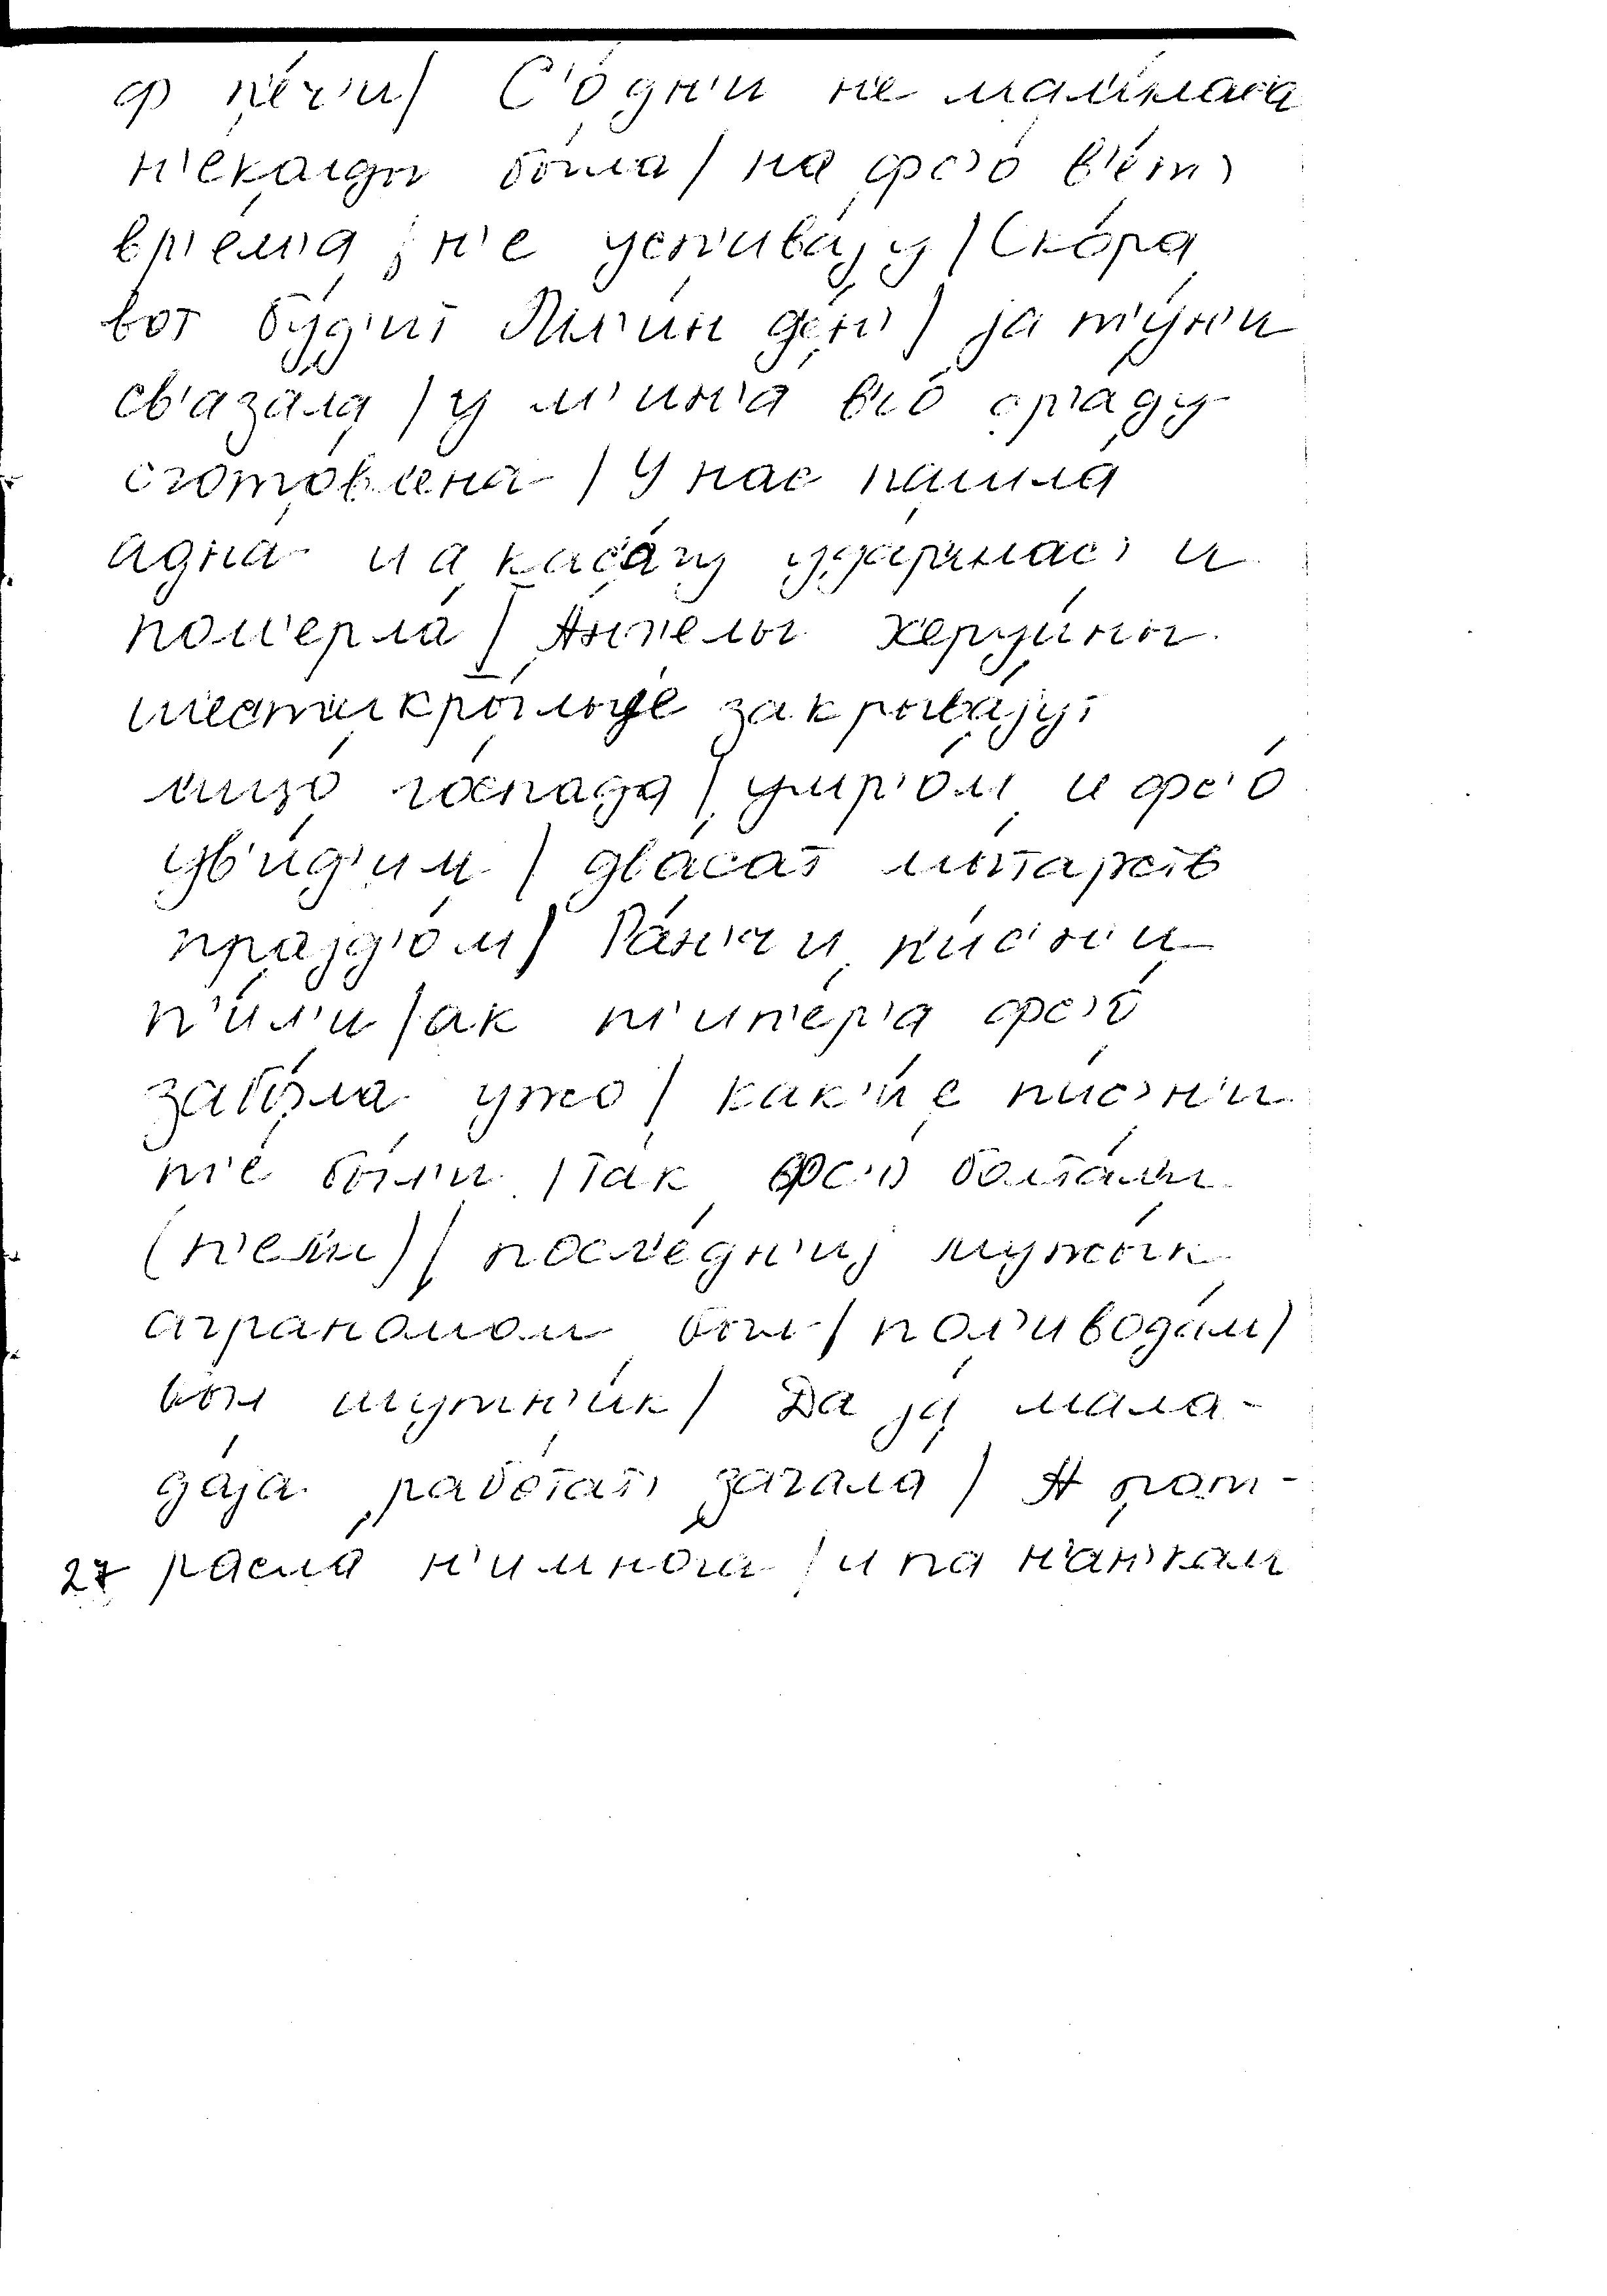 ф п'е́ч'и/ С'о́дн'и не мал'и́лас'а
н'е́калды бы́ла/ на фс'о́ в'е́т'
вр'е́м'а j н'е усп'ива́jу/ Ско́ра
вот бу́д'ит И́л'ин д'е́н'/ jа т'у́н'и
св'аза́ла /у м'ин'а́ вс'о́ ср'а́ду
сгото́влена / У нас пашла́
адна́ и а каса́гу уда́рилас' и
пом'ерла́ / А́нг'елы херуи́мы
шестикры́лые закрыва́jут
лицо́ го́спада / умр'о́м и фс'о́
ув'и́д'им / два́сат мыта́рств
праjд'о́м/ Ра́н'ч'и п'и́с'н'и
п'и́л'и /ак т'ип'е́р'а фс'о́
забы́ла ужо / как'и́е пи́с'н'и
т'е́ бы́л'и /так фс'о́ болта́лы
(п'е́л'и)/ посл'е́дн'иj мужы́к
аграно́мом был / пол'ивода́м/
был шутн'и́к/ Да jа́ мала-
да́jа рабо́тат' зачала́ / А рот-
27 расла́ н'имно́га / и па н'а́н'кам